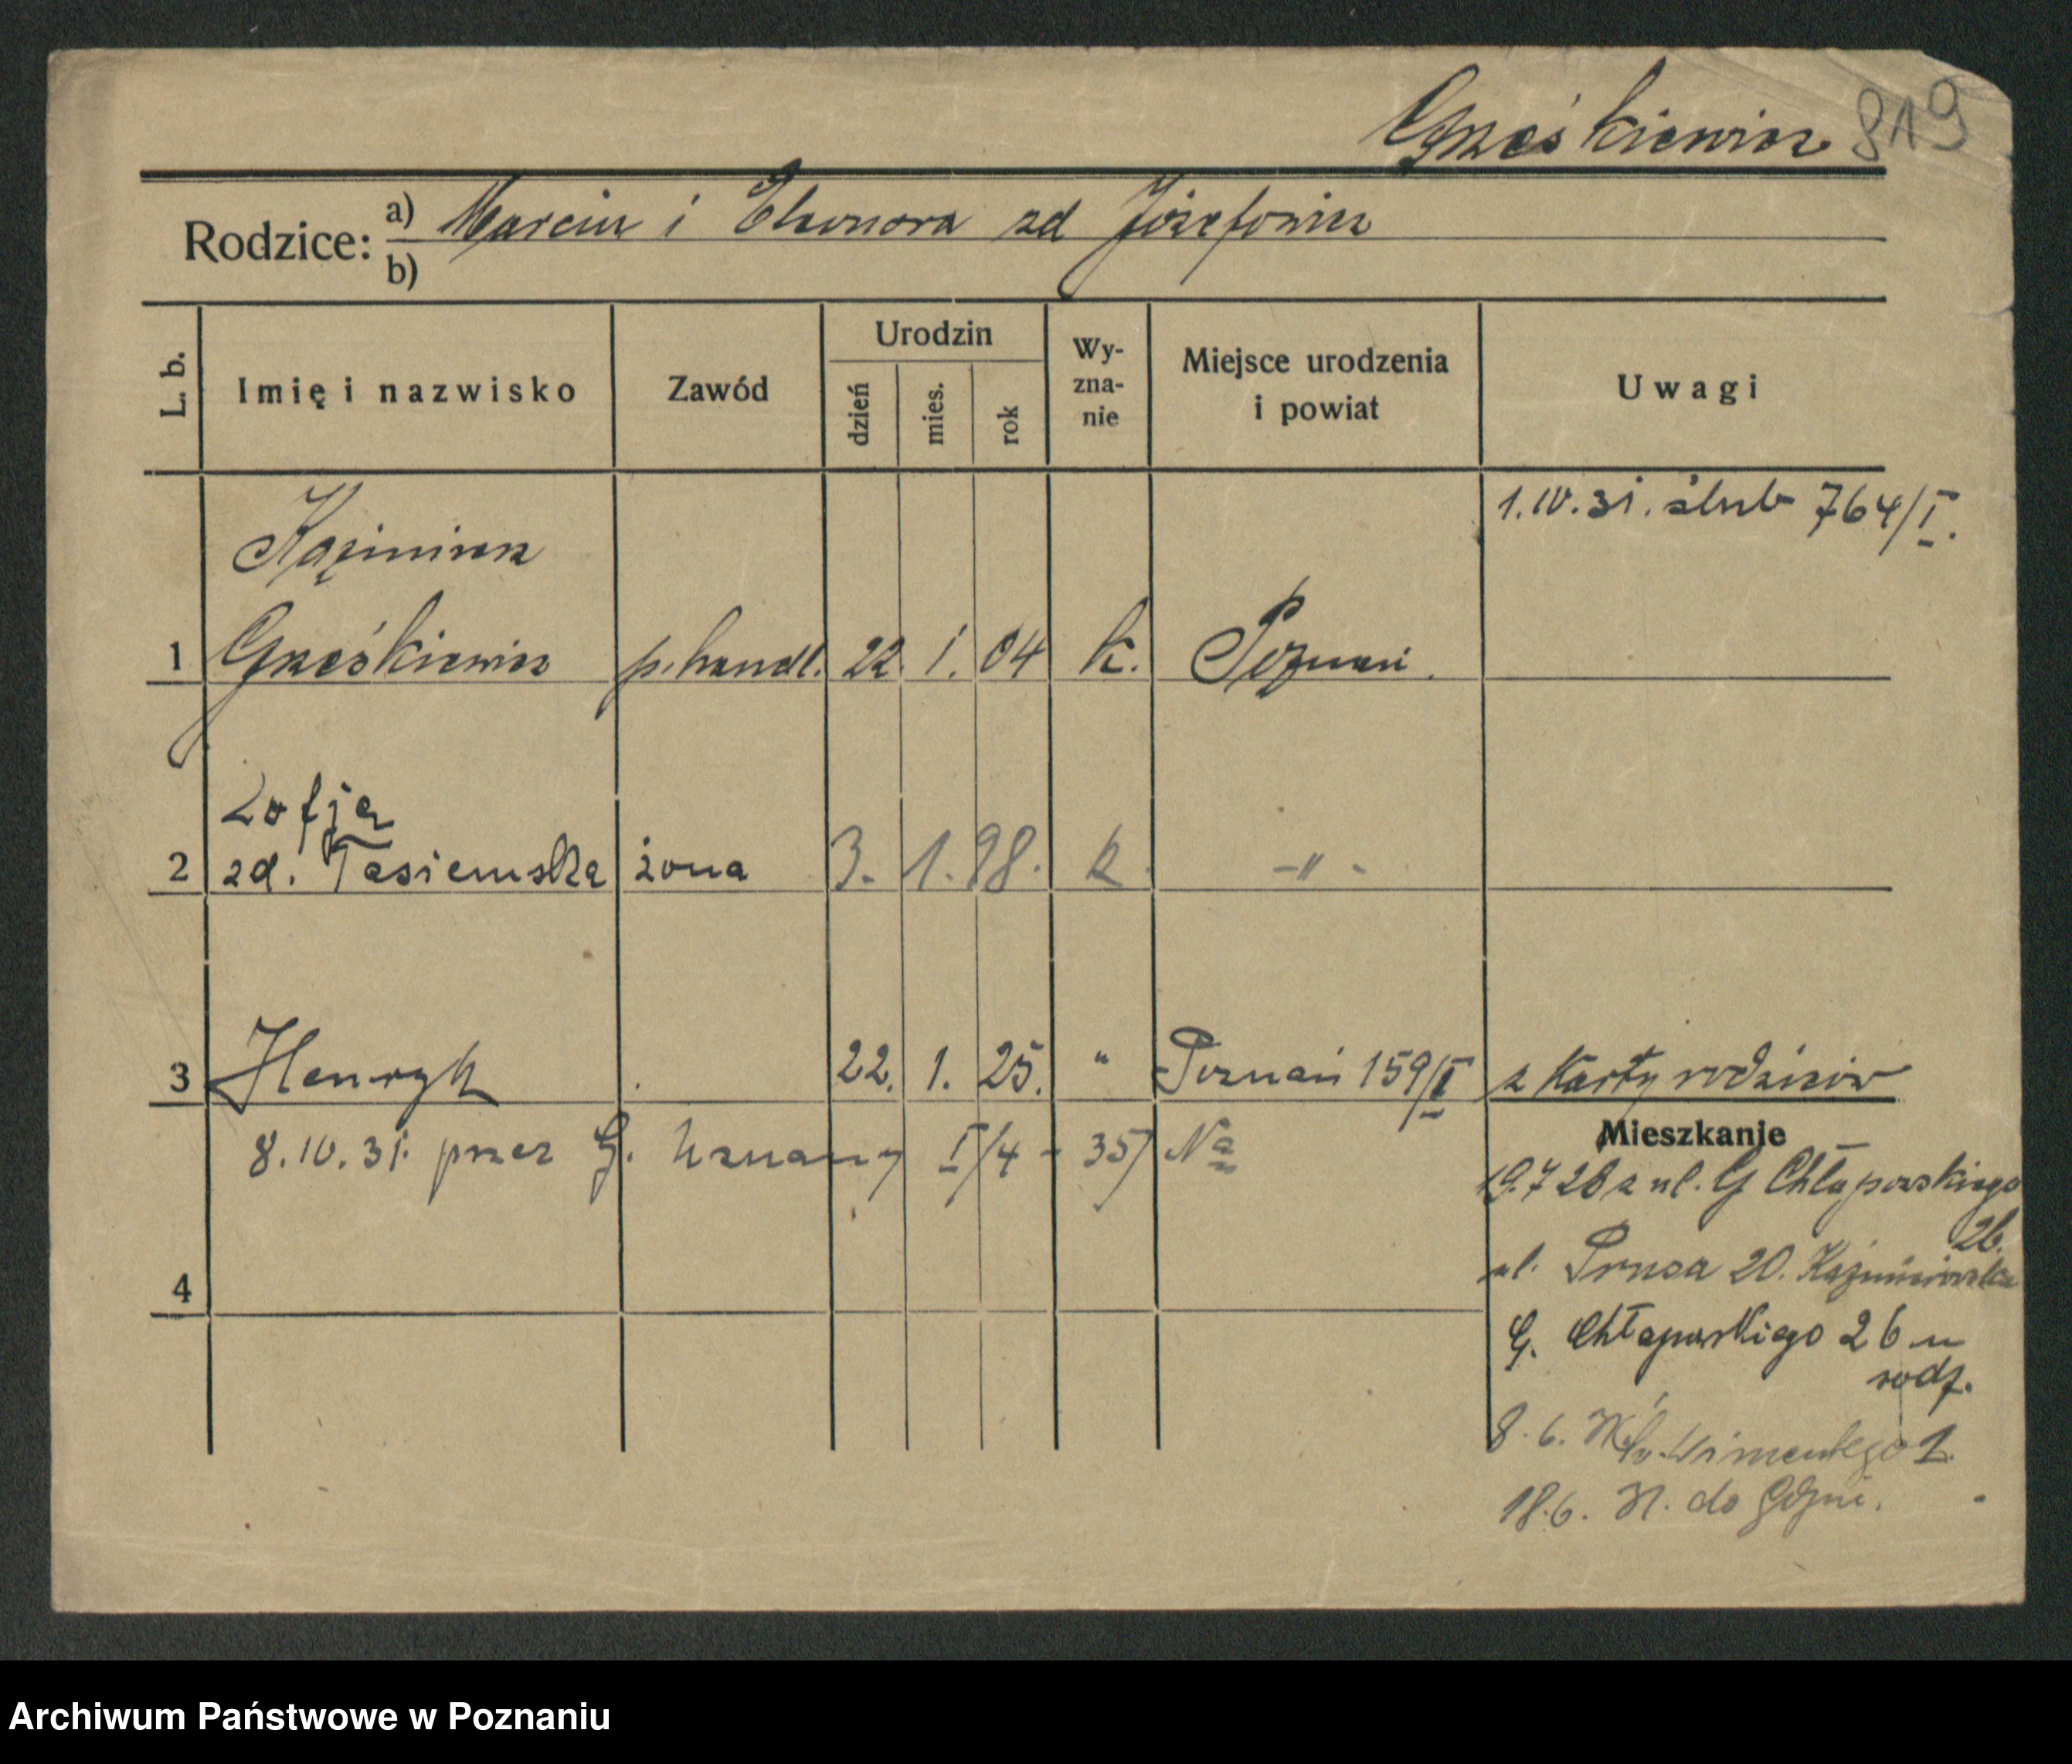 Grześkiewicz 819
Rodzice: a) Marcin i Eleonora zd Józefowicz
b)
L. b.
Imię i nazwisko
Zawód
Urodzin
dzień
mies.
rok
Wy-
zna-
nie
Miejsce urodzenia
i powiat
Uwagi
1.IV.31. ślub 764/I.
Kazimierz
1 Grześkiewicz p. handl. 22. 1. 04 k. Poznań.
Zofja
2 zd. Tasiemska żona 3. 1. 98. k -"-
3 Henryk 22. 1. 25. " Poznań 159/I z Karty rodziców
8.IV.31. przez G. uznany I/4 - 35/ Na
Mieszkanie
19.7 28 z ul. G Chłapowskiego
26.
ul. Prusa 20.
4
G. Chłapowskiego 26 u
rodz.
8.6. 1.
18.6. N. do Gdyni.
Archiwum Państwowe w Poznaniu